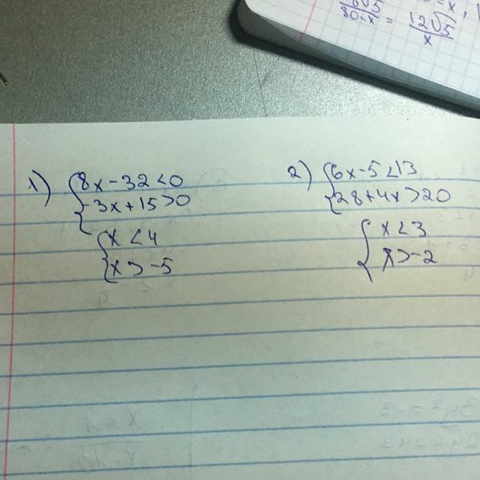 30-x = x
1) { 8x-32<0
-3x+15>0
{ x<4
x>-5
2) { 6x-5<13
28+4x>20
{ x<3
x>-2